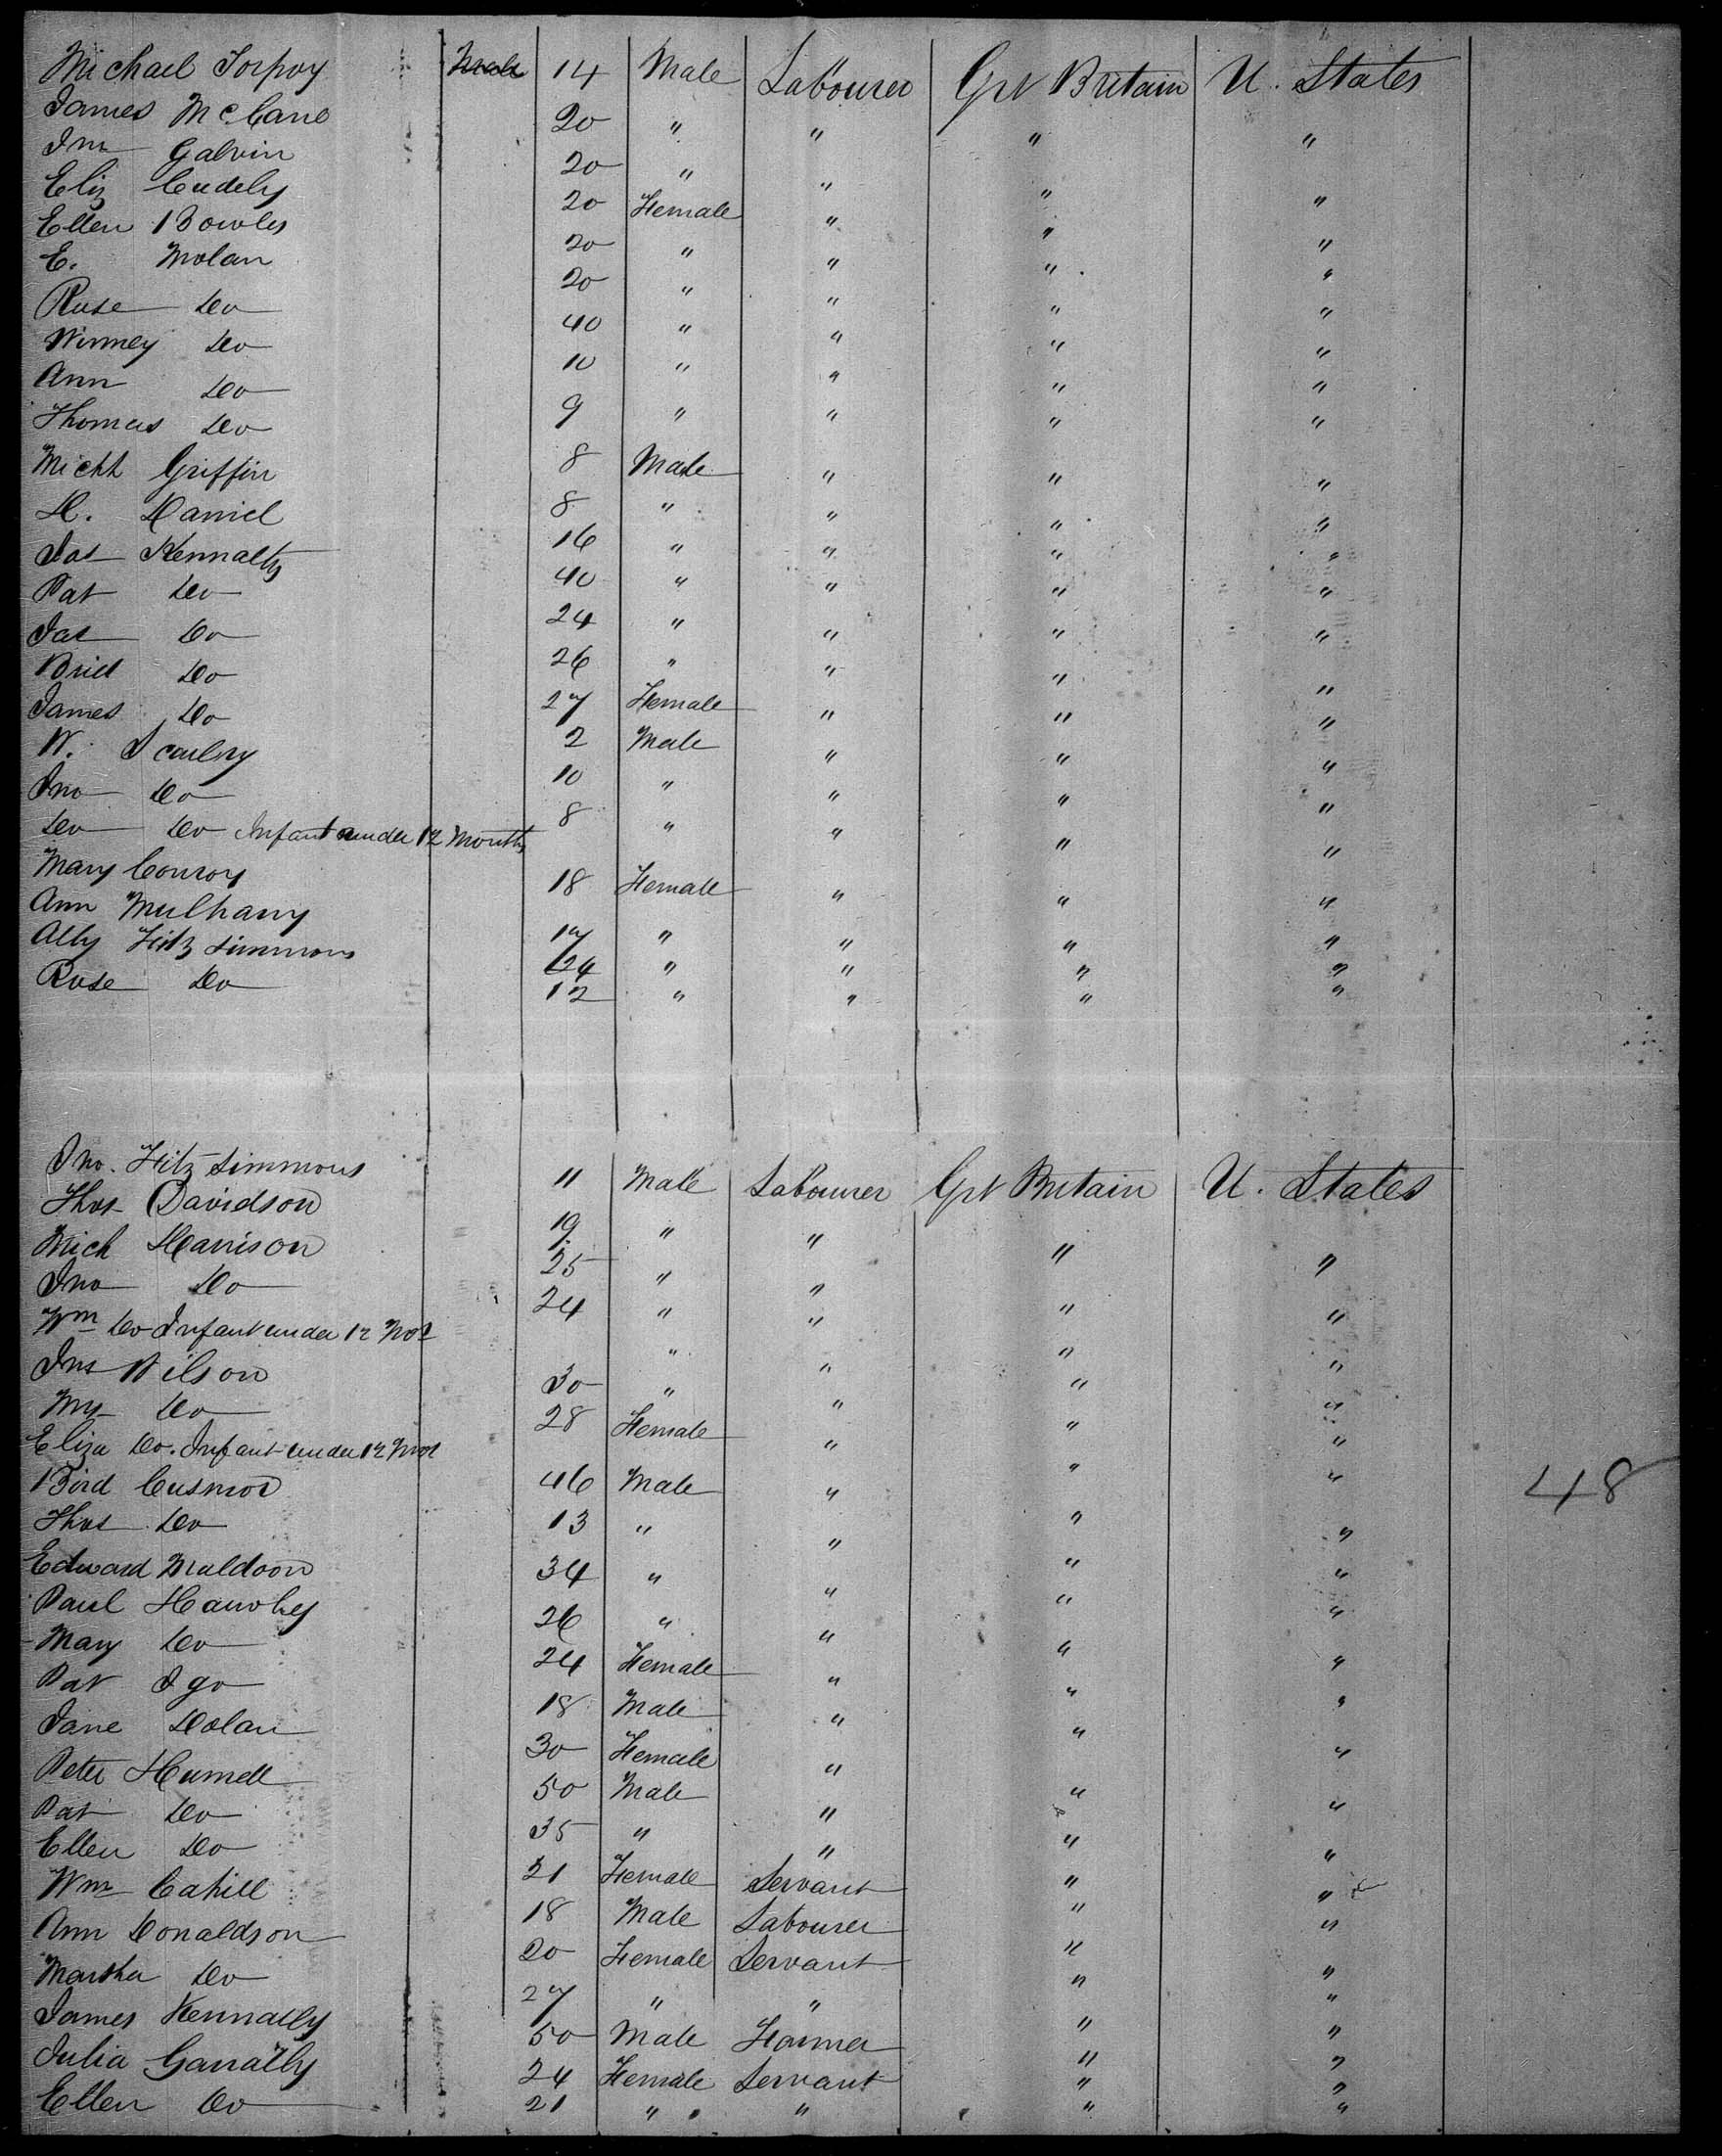 Michael Torpoy Male 14 Male Labourer Grt Britain U. States
James McCane 20 " " " "
Jno Galvin 20 " " " "
Eliz Cudely 20 Female " " "
Ellen Bowles 20 " " " "
E. Molan 20 " " " "
Rose Do 40 " " " "
Winney Do 10 " " " "
Ann Do 9 " " " "
Thomas Do 8 Male " " "
Michl Griffin 8 " " " "
D. Daniel 16 " " " "
Jas Kennalty 40 " " " "
Pat Do 24 " " " "
Jas Do 26 " " " "
Brid Do 27 Female " " "
James Do 2 Male " " "
W. Scarlry 10 " " " "
Jno Do 8 " " " "
Do Do Infant under 12 Months
Mary Conroy 18 Female " " "
Ann Mulhany 17 " " " "
Ally Fitz Simmons 24 " " " "
Rose Do 12 " " " "
Jno. Fitz Simmons 11 Male Labourer Grt Britain U. States
Thos Davidson 19 " " " "
Mich Harrison 25 " " " "
Jno Do 24 " " " "
Wm Do Infant under 12 Mos " " " "
Jno Wilson 30 " " " "
My Do 28 Female " " "
Eliza Do. Infant under 12 Mos
Bird Cusmor 46 Male " " "
Thos Do 13 " " " "
Edward Muldoon 34 " " " "
Paul Hawley 26 " " " "
Mary Do 24 Female " " "
Pat Igo 18 Male " " "
Jane Dolan 30 Female " " "
Peter Humell 50 Male " " "
Pat Do 35 " " " "
Ellen Do 21 Female Servant " "
Wm Cahill 18 Male Labourer " "
Ann Donaldson 20 Female Servant " "
Martha Do 27 " " " "
James Kennally 50 Male Farmer " "
Julia Ganally 24 Female Servant " "
Ellen Do 21 " " " "
48